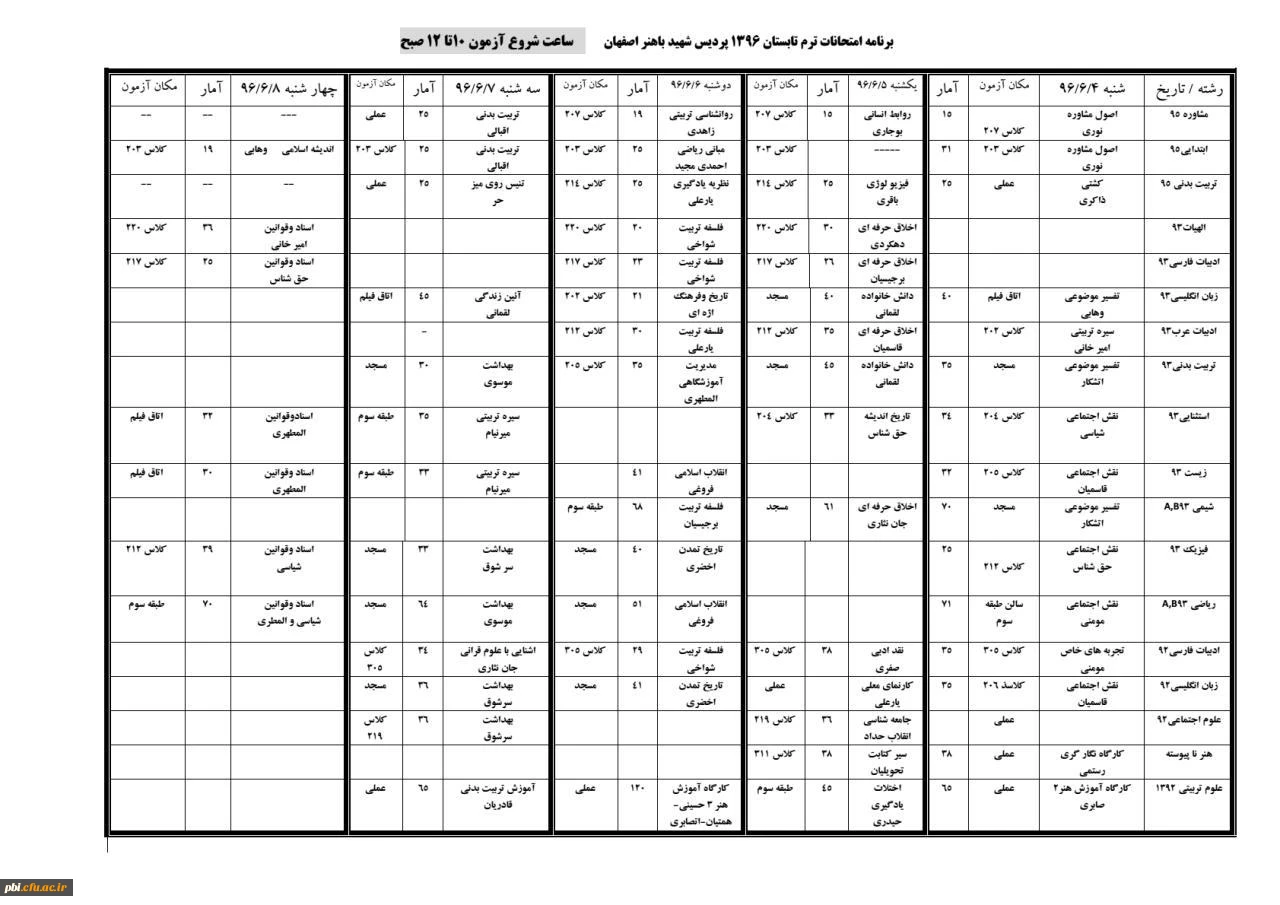 برنامه امتحانات ترم تابستان ۱۳۹۶ پردیس شهید باهنر اصفهان ساعت شروع آزمون ۱۰تا ۱۲ صبح
رشته / تاریخ شنبه ۹۶/۶/۴ مکان آزمون آمار یکشنبه ۹۶/۶/۵ آمار مکان آزمون دوشنبه ۹۶/۶/۶ آمار مکان آزمون سه شنبه ۹۶/۶/۷ آمار مکان آزمون چهار شنبه ۹۶/۶/۸ آمار مکان آزمون
مشاوره ۹۵ اصول مشاوره ۱۵ روابط انسانی ۱۵ کلاس ۲۰۷ روانشناسی تربیتی ۱۹ کلاس ۲۰۷ تربیت بدنی ۲۵ عملی --- -- --
نوری کلاس ۲۰۷ بوجاری زاهدی اقبالی
ابتدایی۹۵ اصول مشاوره کلاس ۲۰۳ ۳۱ ----- کلاس ۲۰۳ مبانی ریاضی ۲۵ کلاس ۲۰۳ تربیت بدنی ۲۵ کلاس ۲۰۳ اندیشه اسلامی وهابی ۱۹ کلاس ۲۰۳
نوری احمدی مجید اقبالی
تربیت بدنی ۹۵ کشتی عملی ۲۵ فیزیو لوژی ۲۵ کلاس ۲۱۴ نظریه یادگیری ۲۵ کلاس ۲۱۴ تنیس روی میز ۲۵ عملی -- -- --
ذاکری باقری یارعلی حر
الهیات۹۳ اخلاق حرفه ای ۳۰ کلاس ۲۲۰ فلسفه تربیت ۲۰ کلاس ۲۲۰ اسناد وقوانین ۳۶ کلاس ۲۲۰
دهکردی شواخی امیر خانی
ادبیات فارسی۹۳ اخلاق حرفه ای ۲۶ کلاس ۲۱۷ فلسفه تربیت ۲۳ کلاس ۲۱۷ اسناد وقوانین ۲۵ کلاس ۲۱۷
برجیسیان شواخی حق شناس
زبان انگلیسی۹۳ تفسیر موضوعی اتاق فیلم ۴۰ دانش خانواده ۴۰ مسجد تاریخ وفرهنگ ۲۱ کلاس ۲۰۲ آئین زندگی ۴۵ اتاق فیلم
وهابی لقمانی اژه ای لقمانی
ادبیات عرب۹۳ سیره تربیتی کلاس ۲۰۲ اخلاق حرفه ای ۳۵ کلاس ۲۱۲ فلسفه تربیت ۳۰ کلاس ۲۱۲ -
امیر خانی قاسمیان یارعلی
تربیت بدنی۹۳ تفسیر موضوعی مسجد ۳۵ دانش خانواده ۴۵ مسجد مدیریت ۳۵ کلاس ۲۰۵ بهداشت ۳۰ مسجد
اتشکار لقمانی آموزشگاهی موسوی
المطهری
استثنایی۹۳ نقش اجتماعی کلاس ۲۰۴ ۳۴ تاریخ اندیشه ۳۳ کلاس ۲۰۴ سیره تربیتی ۳۵ طبقه سوم اسنادوقوانین ۳۲ اتاق فیلم
شیاسی حق شناس میرنیام المطهری
زیست ۹۳ نقش اجتماعی کلاس ۲۰۵ ۳۲ انقلاب اسلامی ۴۱ سیره تربیتی ۳۳ طبقه سوم اسناد وقوانین ۳۰ اتاق فیلم
قاسمیان فروغی میرنیام المطهری
شیمی A,B۹۳ تفسیر موضوعی مسجد ۷۰ اخلاق حرفه ای ۶۱ مسجد فلسفه تربیت ۶۸ طبقه سوم
اتشکار جان نثاری برجیسیان
فیزیک ۹۳ نقش اجتماعی ۲۵ تاریخ تمدن ۴۰ مسجد بهداشت ۳۳ مسجد اسناد وقوانین ۳۹ کلاس ۲۱۲
حق شناس کلاس ۲۱۲ اخضری سر شوق شیاسی
ریاضی A,B۹۳ نقش اجتماعی سالن طبقه ۷۱ انقلاب اسلامی ۵۱ مسجد بهداشت ۶۴ مسجد اسناد وقوانین ۷۰ طبقه سوم
مومنی سوم فروغی موسوی شیاسی و المطری
ادبیات فارسی۹۲ تجربه های خاص کلاس ۳۰۵ ۳۵ نقد ادبی ۳۸ کلاس ۳۰۵ فلسفه تربیت ۲۹ کلاس ۳۰۵ اشنایی با علوم قرانی ۳۴ کلاس
مومنی صفری شواخی جان نثاری ۳۰۵
زبان انگلیسی۹۲ نقش اجتماعی کلاسذ ۲۰۶ ۳۵ کارنمای معلی عملی تاریخ تمدن ۴۱ مسجد بهداشت ۳۶ مسجد
قاسمیان یارعلی اخضری سرشوق
علوم اجتماعی۹۲ عملی جامعه شناسی ۳۶ کلاس ۲۱۹ بهداشت ۳۶ کلاس
انقلاب حداد سرشوق ۲۱۹
هنر نا پیوسته کارگاه نگار گری عملی ۳۸ سیر کتابت ۳۸ کلاس ۳۱۱
رستمی تحویلیان
علوم تربیتی ۱۳۹۲ کارگاه آموزش هنر۲ عملی ۶۵ اختلات ۴۵ طبقه سوم کارگاه آموزش ۱۲۰ عملی آموزش تربیت بدنی ۶۵ عملی
صابری یادگیری هنر ۳ حسینی- قادریان
حیدری همتیان-انصابری
pbi.cfu.ac.ir